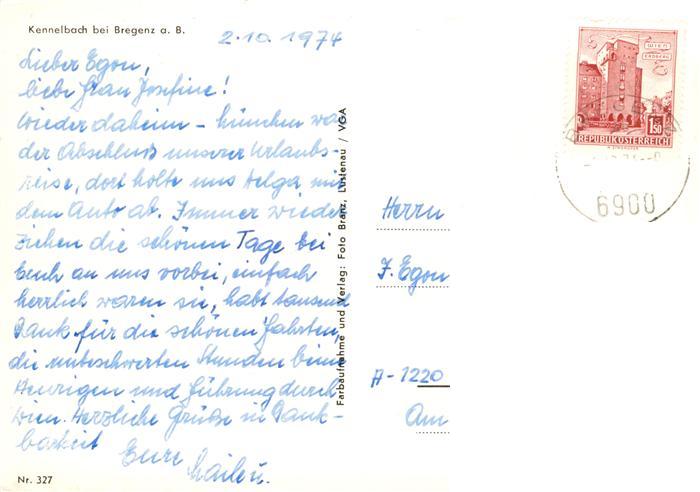 Kennelbach bei Bregenz a. B.
2.10.1974
Lieber Egon,
liebe Frau Josefine!
Wieder daheim - München war
der Abschluß unserer Urlaubs-
reise, dort holte uns Helga mit
dem Auto ab. Immer wieder
ziehen die schönen Tage bei
Euch an uns vorbei, einfach
herrlich waren sie, habt tausend
Dank für die schönen Fahrten,
die unbeschwerten Stunden beim
Heurigen und Führung durch
Wien. Herzliche Grüße in Dank-
barkeit
Eure
Nr. 327
Farbaufnahme und Verlag: Foto Branz, Lustenau / VGA
WIEN
ERDBERG
1.50
REPUBLIK ÖSTERREICH
6900
Herrn
J. Egon
A-1220
Am